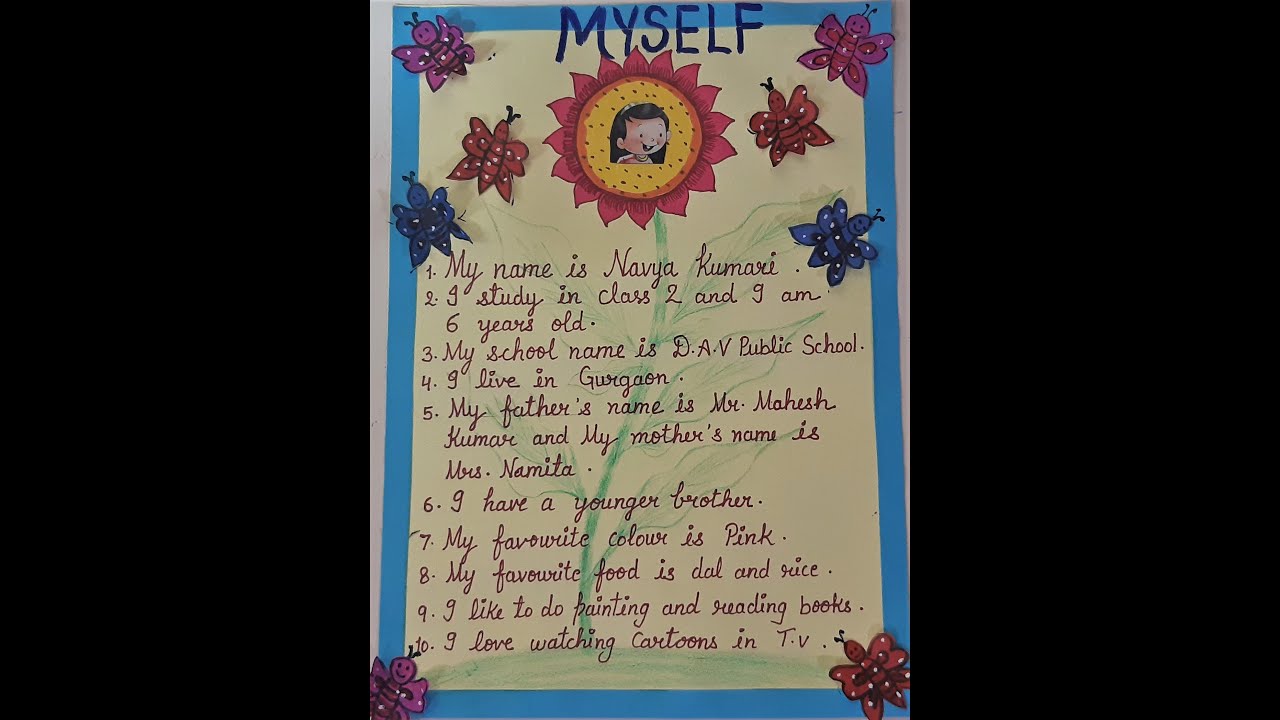 MYSELF
1. My name is Navya Kumari.
2. I study in class 2 and I am
6 years old.
3. My school name is D.A.V Public School.
4. I live in Gurgaon.
5. My father's name is Mr. Mahesh
Kumar and My mother's name is
Mrs. Namita.
6. I have a younger brother.
7. My favourite colour is Pink.
8. My favourite food is dal and rice.
9. I like to do painting and reading books.
10. I love watching Cartoons in T.v.